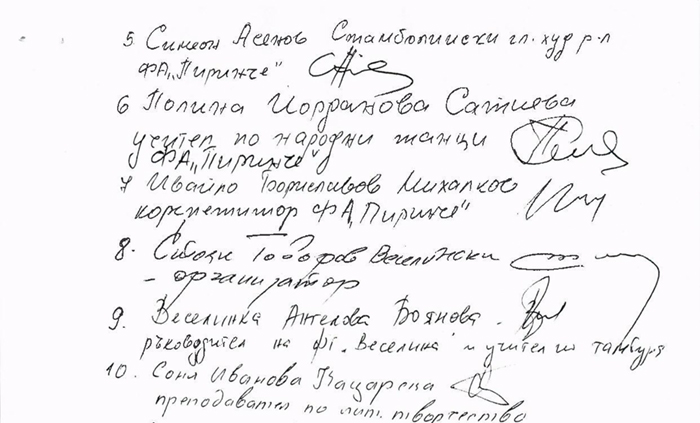 5 Симеон Асенов Стамболийски гл. худ. р-л
ФА „Пиринче"
6 Полина Йорданова Сатиева
учител по народни танци
ФА „Пиринче"
7 Ивайло Бориславов Михалков
корепетитор ФА „Пиринче"
8. Стоян Тодоров Веселински
- организатор
9. Веселинка Ангелова Боянова -
ръководител на фг. „Веселина" и учител по тамбура
10. Соня Иванова Кацарска
преподавател по лит. творчество